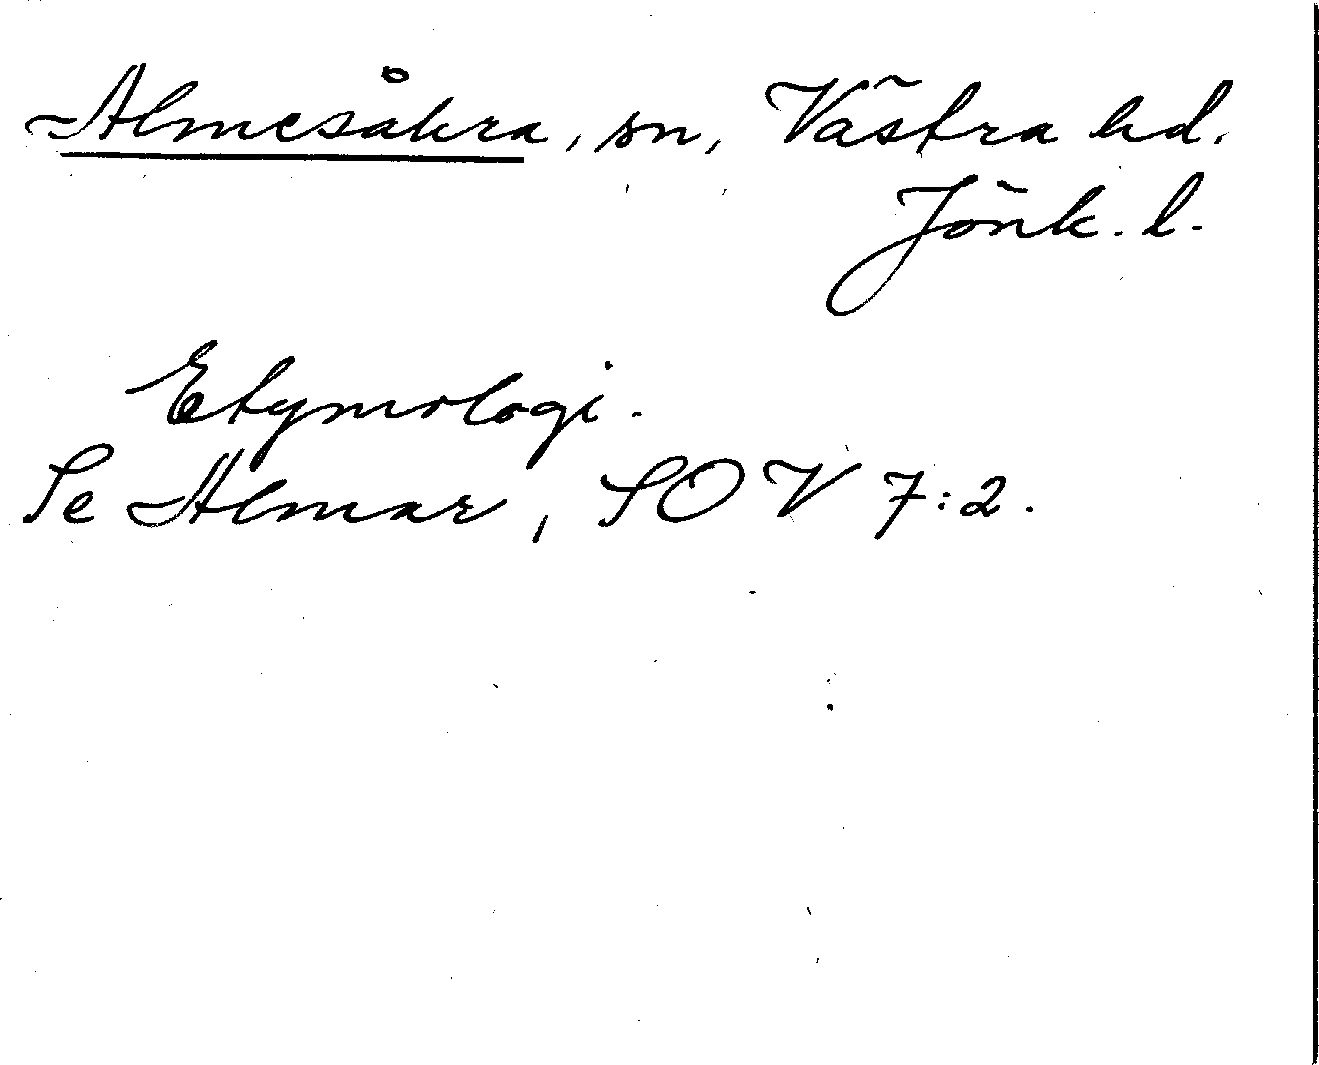 Almesåkra, sn, Västra hd.
Jönk. l.
Etymologi.
Se Almar, SOV 7:2.